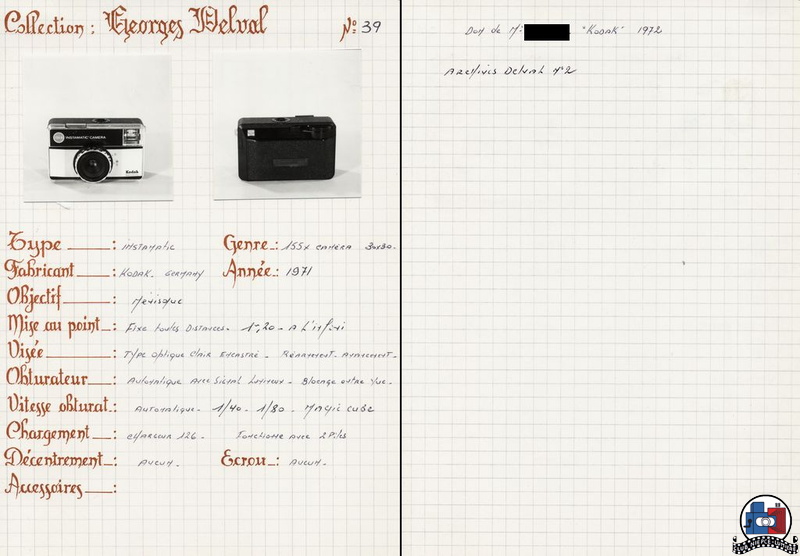 Collection : Georges Delval Nº 39
INSTAMATIC CAMERA
Kodak
Type : INSTAMATIC Genre : 155X CAMERA 30x30.
Fabricant : KODAK. GERMANY Année : 1971
Objectif : Ménisque
Mise au point : Fixe toutes Distances. 1m,20 - A L'infini
Visée : Type optique Clair - Armement.
Obturateur : Automatique Avec Signal Lumineux - Blocage entre Vue.
Vitesse obturat. : Automatique - 1/40 - 1/80 - Magic cube
Chargement : chargeur 126 - Fonctionne avec 2 Piles
Décentrement : Aucun. Ecrou : Aucun.
Accessoires :
Don de Mr "KODAK" 1972
Archives Delval Nº2